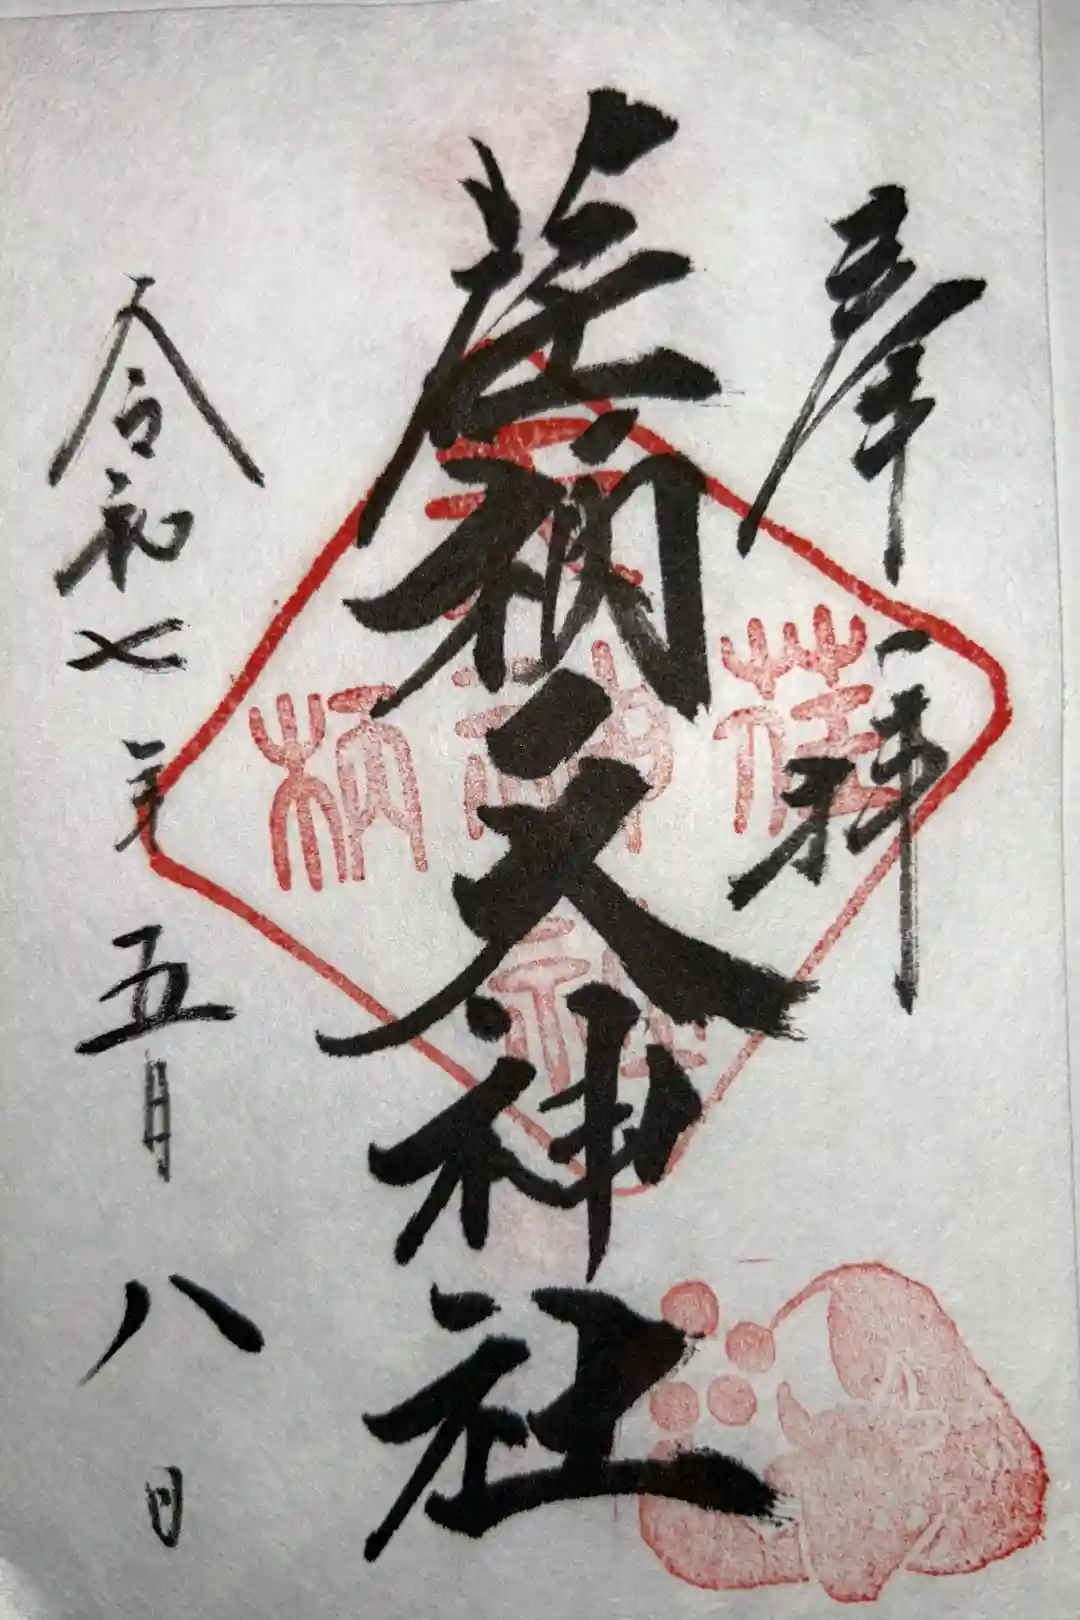 奉拝
荏柄天神社
令和七年五月八日
荏柄天神社